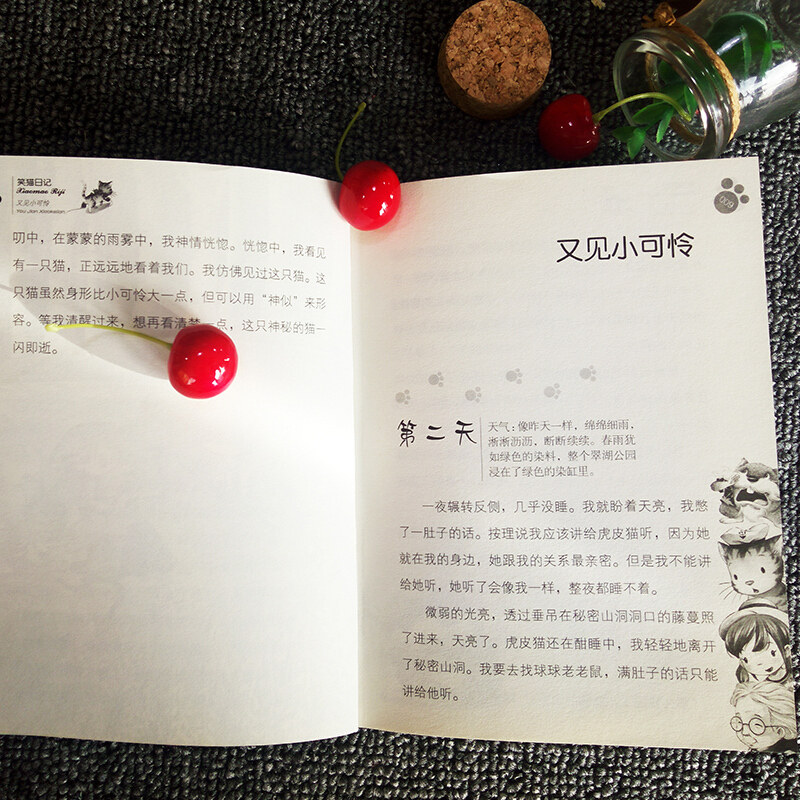 笑猫日记
Xiaomao Riji
又见小可怜
You Jian Xiaokelian
叨中，在蒙蒙的雨雾中，我神情恍惚。恍惚中，我看见
有一只猫，正远远地看着我们。我仿佛见过这只猫。这
只猫虽然身形比小可怜大一点，但可以用“神似”来形
容。等我清醒过来，想再看清楚一点，这只神秘的猫一
闪即逝。
009
又见小可怜
第二天
天气：像昨天一样，绵绵细雨，
淅淅沥沥，断断续续。春雨犹
如绿色的染料，整个翠湖公园
浸在了绿色的染缸里。
一夜辗转反侧，几乎没睡。我就盼着天亮，我憋
了一肚子的话。按理说我应该讲给虎皮猫听，因为她
就在我的身边，她跟我的关系最亲密。但是我不能讲
给她听，她听了会像我一样，整夜都睡不着。
微弱的光亮，透过垂吊在秘密山洞洞口的藤蔓照
了进来，天亮了。虎皮猫还在酣睡中，我轻轻地离开
了秘密山洞。我要去找球球老老鼠，满肚子的话只能
讲给他听。